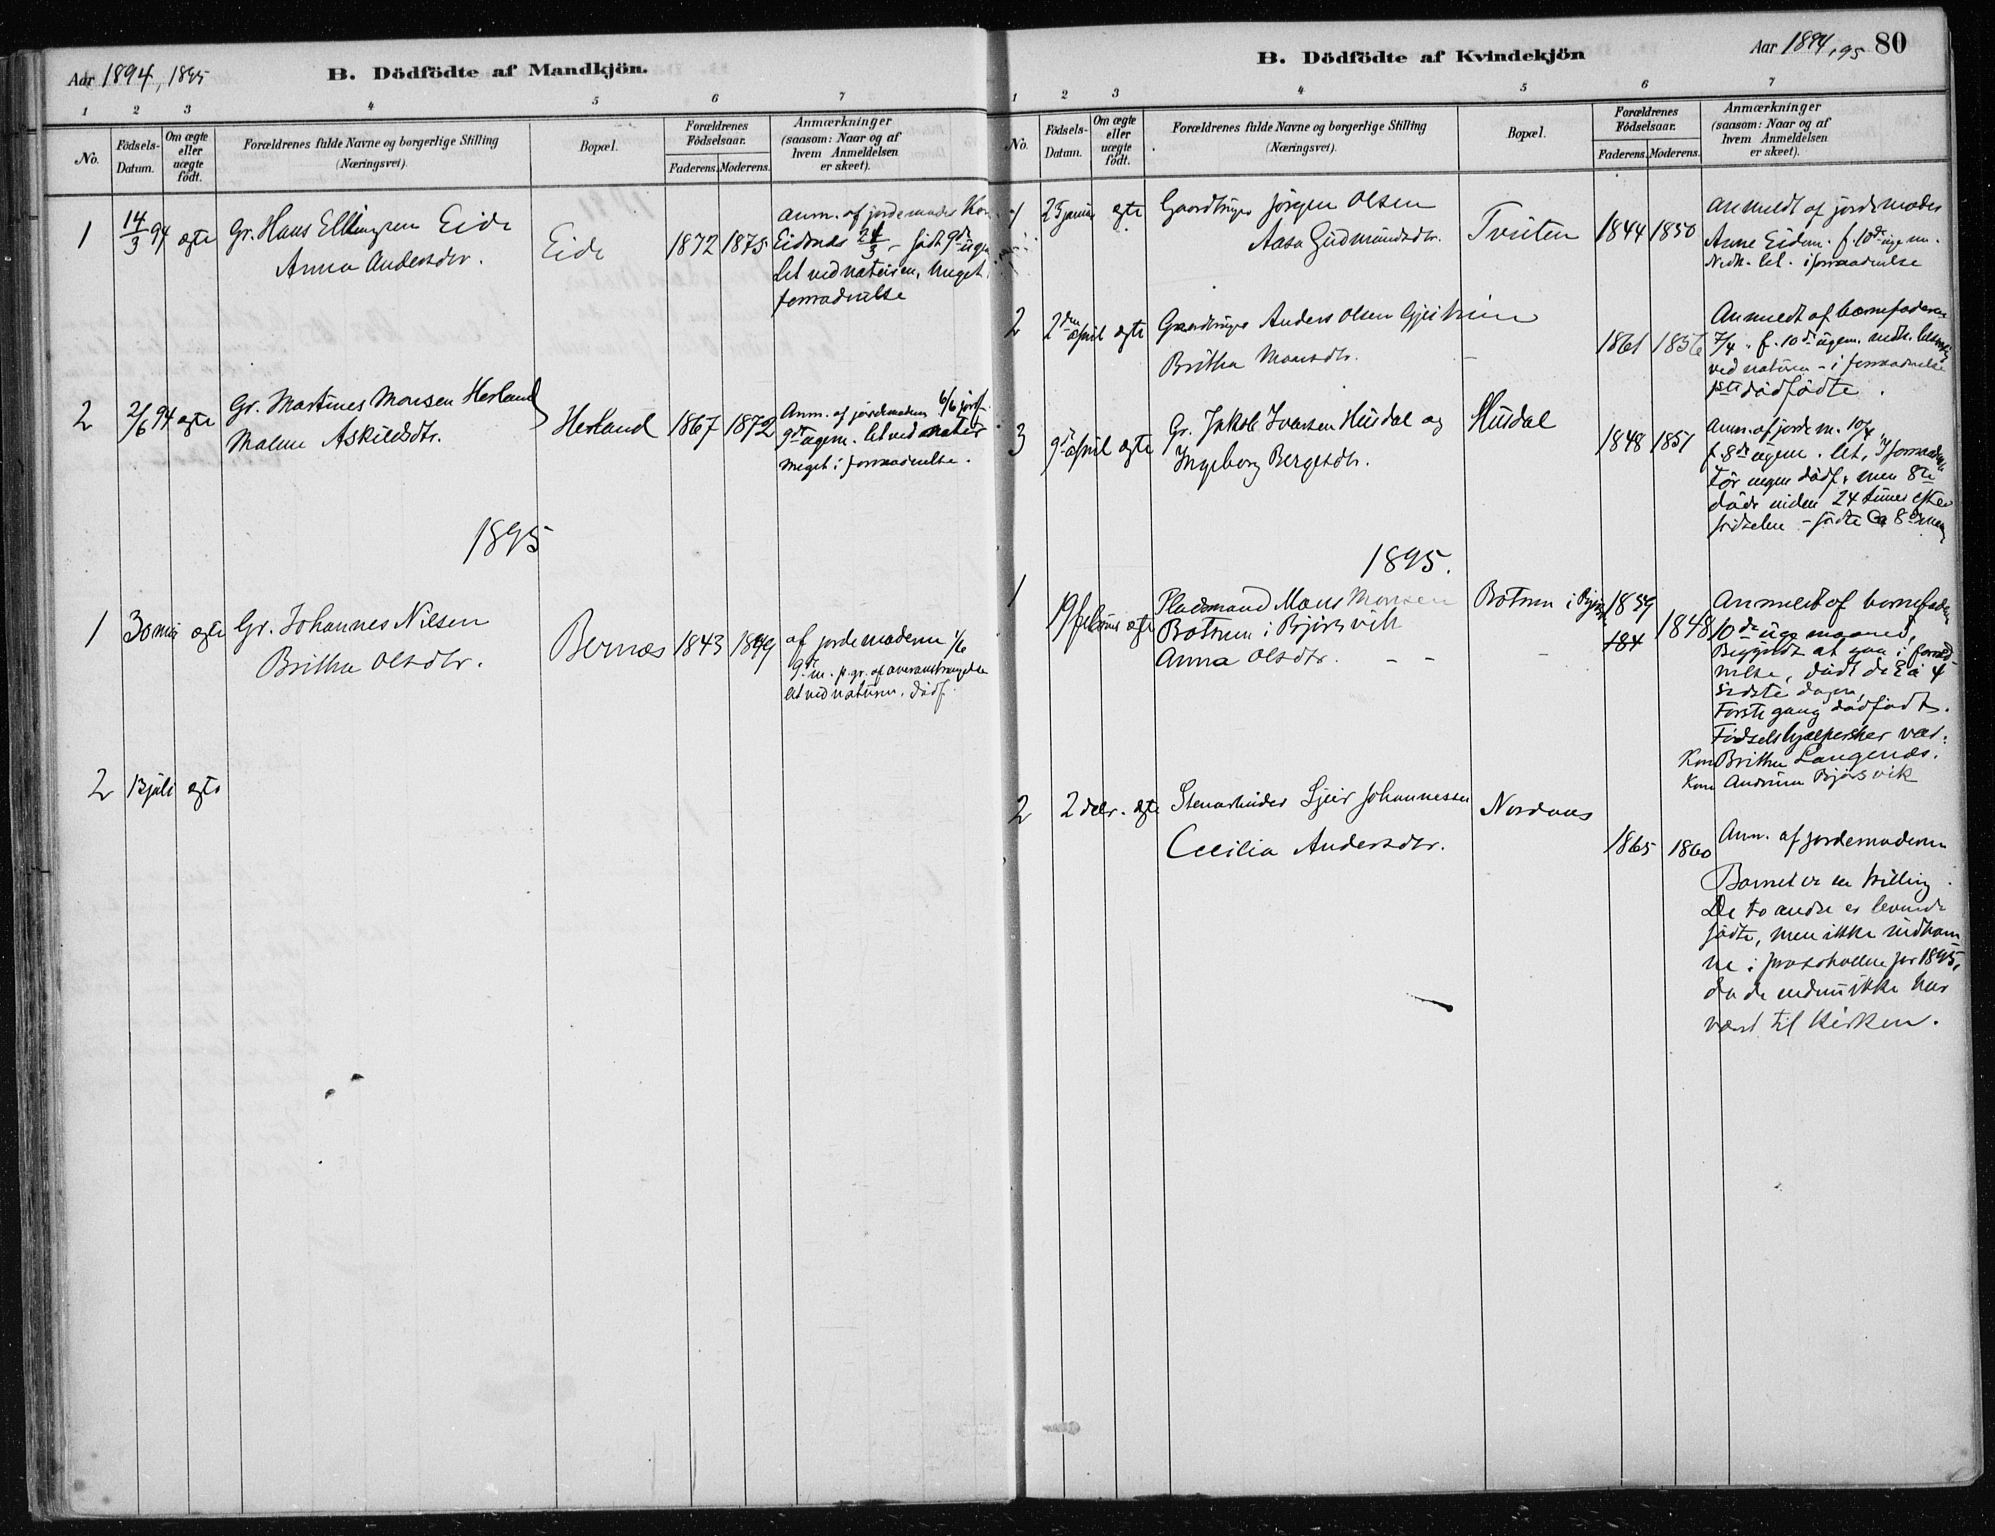 Aar 1894, 1895
B. Dödfödte af Mandkjön.
1 2 3 4 5 6 7
No.
Födsels-
Datum.
Om ægte
eller
uægte
födt.
Forældrenes fulde Navne og borgerlige Stilling
(Næringsvei).
Bopæl.
Forældrenes
Födselsaar.
Faderens. Moderens.
Anmærkninger
(saasom: Naar og af
hvem Anmeldelsen
er skeet).
1 14/3 94 ægte Gr. Hans Ellingsen Eide
Anna Andersdtr.
Eide 1872 1875
Anm. af jordemoder Kon
Eidsnes 24/3 - født 9de
let ved naturen, meget
forraadnelse
2 2/6 94 ægte Gr. Martines Monsen Herland
Malene Askildsdtr.
Herland 1867 1872
Anm. af jordemodern 6/6
9de ugem. let ved natur
meget i forraadnelse.
1895
1 30 mai ægte Gr. Johannes Nilsen
Britha Olsdtr.
Bernæs 1843 1849
af jordemodern 1/6
9de m. p. gr. af overanstrengelse
let ved naturen. dödf.
2 13 juli ægte
B. Dödfödte af Kvindekjön
Aar 1894, 95 80
1 2 3 4 5 6 7
No.
Födsels-
Datum.
Om ægte
eller
uægte
födt.
Forældrenes fulde Navne og borgerlige Stilling
(Næringsvei).
Bopæl.
Forældrenes
Födselsaar.
Faderens. Moderens.
Anmærkninger
(saasom: Naar og af
hvem Anmeldelsen
er skeet).
1 25 januar ægte Gaardbruger Jørgen Olsen
Aasa Gudmundsdtr.
Tveiten 1844 1850
Anmeldt af jordemoder
Anne Eidsn. f. 10de uge m.
Nedk. let. i forraadnelse
2 2den april ægte Gaardbruger Anders Olsen
Britha Monsdtr. -
1861 1856
Anmeldt af barnefaderen
7/4. f. 10de ugem. nedk.
ved naturen - i forraadnelse
1ste dødfødte.
3 9de april ægte Gr. Jakob Ivarsen Husdal og
Ingeborg Bergesdtr.
Husdal 1848 1851
Anm. af jordem. 10/4
f. 8de ugem. let,
Før ingen dødf. men 8te
døde inden 24 timer efter
fødselen - fødte
1895.
1 19 februar ægte Pladsmand Mons Monsen
Botnen i Bjørsvik
Anna Olsdtr. - -
Botnen i Bjørsv. 1859
184 1848
Anmeldt af barnefaderen
10de uge maaned,
Begyndt at gaa i forraad-
nelse, dødt de 3 à 4
sidste dage,
Første gang dødfødt.
Fødselshjælpersker var:
Kone Britha Langenæs.
Kone Andrina Bjørsvik
2 2 debr. ægte Stenarbeider Sjur Johannessen
Cecilia Andersdtr.
Nordanes
1865 1860
Anm. af jordemoderen
Barnet er en trilling.
De to andre er levende
fødte, men ikke indkom-
ne i protokollen for 1895,
da de endnu ikke har
været til kirken.